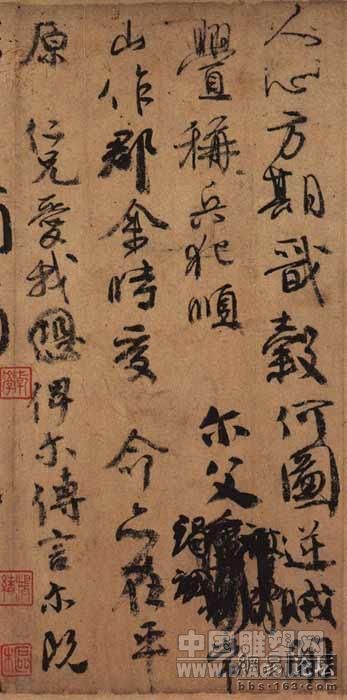 人心方期戩穀何圖逆賊閒
釁稱兵犯順 尔父竭誠常
山作郡余時受 命亦在平
原 仁兄愛我俾尔傳言尔既
中国雕塑网
網易 论坛
bbs·163·com